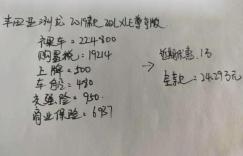 丰田亚洲龙 2019款 2.0L XLE尊贵版
裸车 = 224800
购置税 = 19214
上牌 = 500
车船 = 480
交强险 = 950
商业保险 = 6987
→
近期优惠: 1万
全款 = 24.293万元